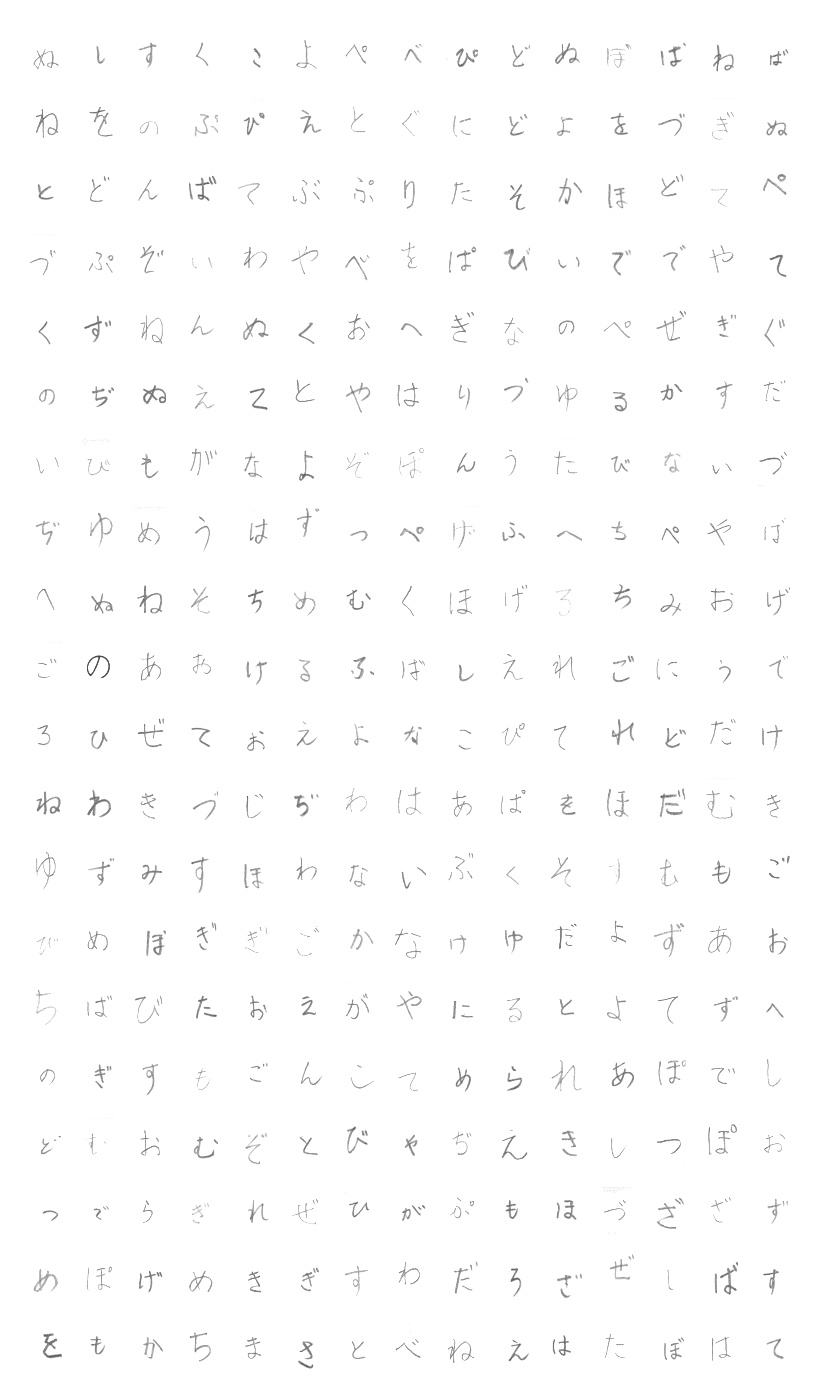 ぬしすくこよぺべぴどぬぼばねば
ねをのぷぴえとぐにどよをづぎぬ
とどんばてぶぷりたそかほどてぺ
づぷぞいわやべをぱびいででやて
くずねんぬくおへぎなのぺぜぎぐ
のぢぬえてとやはりづゆるかすだ
いびもがなよぞぽんうたびないづ
ぢゆめうはずっぺげふへちぺやば
へぬねそちめむくほげろちみおげ
ごのあおけるふばしえれごにうで
ろひぜておえよなこぴてれどだけ
ねわきづじぢわはあぱをほだむき
ゆずみすほわないぶくそすむもご
びめぼぎぎごかなけゆだよずあお
ちばびたおえがやにるとよてずへ
のぎすもごんこてめられあぽでし
どむおむぞとびゃぢえきしつぽお
つでらぎれぜひがぷもほづざざず
めぽげめきぎすわだろざぜしばす
をもかちまさとべねえはたぼはて